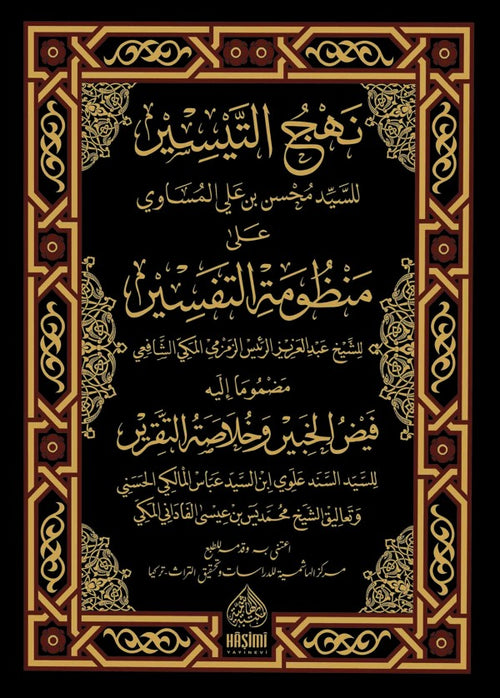 نَهْجُ التَّيْسِيْر
للسَّيِّد مُحْسِن بن عَلي المُسَاوي
عَلىٰ
مَنْظُومَةِ التَّفْسِيْر
للشَّيْخ عَبْد العَزيز الرئيس الزمزمي المكي الشَّافِعي
مَضْمُومًا إلَيه
فَيْضُ الخَبِيْر وَخُلَاصَةُ التَّقْرِيْر
للسيد السند علوي ابن السيد عباس المالكي الحسني
وتعاليق الشيخ محمد يس بن عيسى الفاداني المكي
اعتنى به وقدمه للطبع
مركز الهاشمية للدراسات وتحقيق التراث - تركيا
HÂŞİMÎ
YAYINEVİ